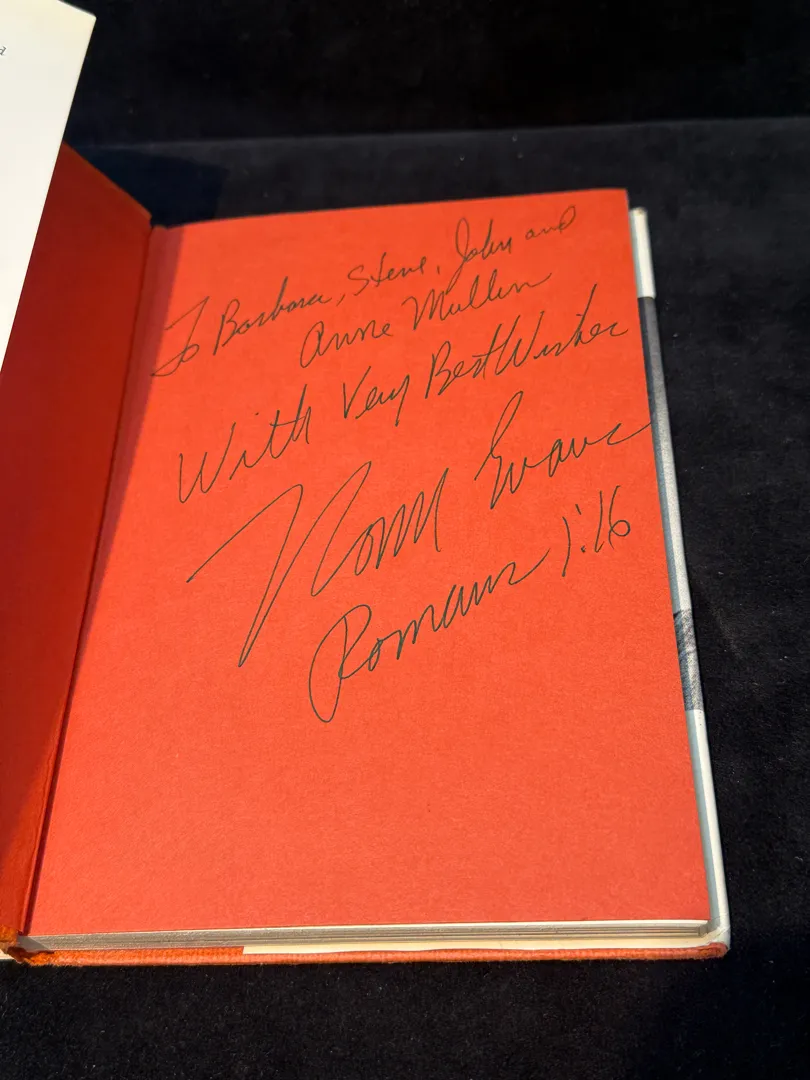 To Barbara, Steve, John and
Anne Mullin
With Very Best Wishes
Norm Evans
Romans 1:16